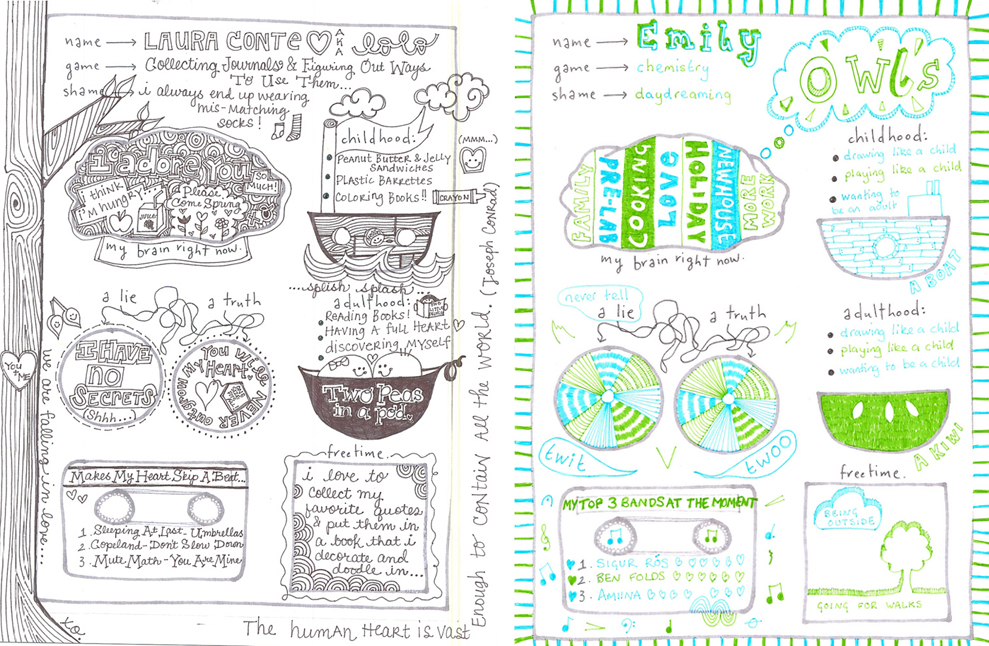 name → LAURA CONTE ♡ AKA lolo
game → Collecting Journals & Figuring Out Ways
To Use Them...
shame → i always end up wearing
mis-matching
socks!
i adore You
SO MUCH!
i think
i'm hungry...
Please
Come Spring
my brain right now.
childhood:
PEANUT BUTTER & JELLY
SANDWICHES
PLASTIC BARRETTES
COLORING BOOKS!!
(MMM...)
CRAYON
...splish splash...
adulthood:
READING BOOKS!
HAVING A full HEART
discovering MYSELF
TWO Peas
in a pod.
a lie
a truth
I HAVE
NO
SECRETS
(Shhh...)
YOU WILL NEVER OUTSMART MY HEART
YOU & ME
we are falling in love...
Makes My Heart Skip A Beat...
1. Sleeping At Last - Umbrellas
2. Copeland - Don't Slow Down
3. Mute Math - You Are Mine
freetime.
i love to
collect my
favorite quotes
& put them in
a book that i
decorate and
doodle in...
xo
The human Heart is vast
Enough to contain All the world. (Joseph Conrad)
name → Emily
game → chemistry
shame → daydreaming
OWLS
FAMILY
PRE-LAB
COOKING
LOVE
HOLIDAY
NEWHOUSE
MORE WORK
my brain right now.
childhood:
drawing like a child
playing like a child
wanting to
be an adult
A BOAT
never tell
a lie
a truth
twit
twoo
adulthood:
drawing like a child
playing like a child
wanting to be a child
A KIWI
MY TOP 3 BANDS AT THE MOMENT
1. SIGUR RÓS
2. BEN FOLDS
3. AMIINA
freetime.
BEING
OUTSIDE
GOING FOR WALKS